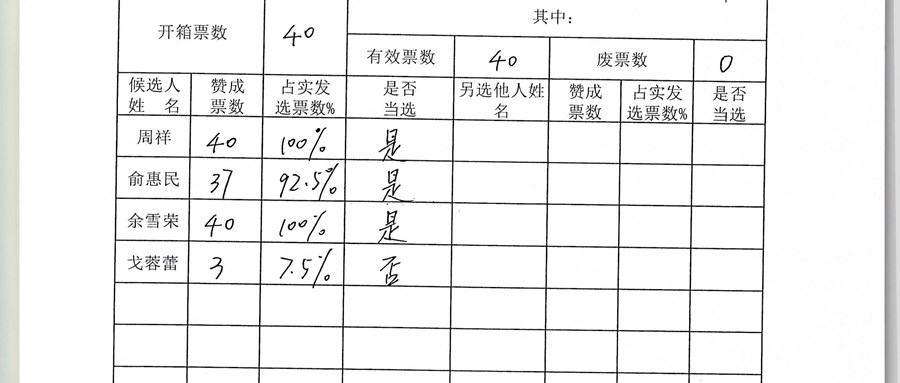 其中：
开箱票数 40
有效票数 40 废票数 0
候选人姓 名 赞成票数 占实发选票数% 是否当选 另选他人姓名 赞成票数 占实发选票数% 是否当选
周祥 40 100% 是
俞惠民 37 92.5% 是
余雪荣 40 100% 是
戈蓉蕾 3 7.5% 否